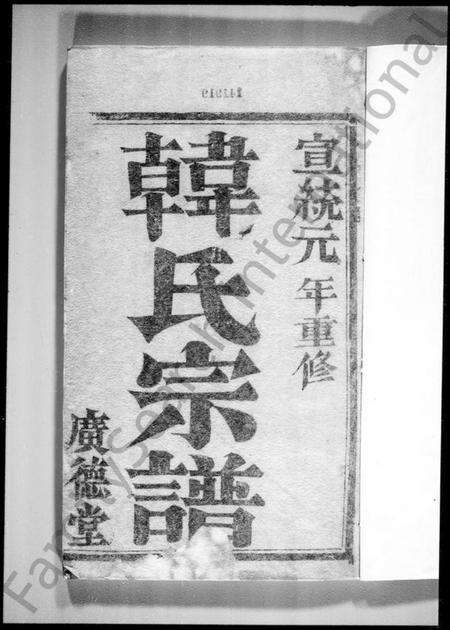 宣統元年重修
韓氏宗譜
廣德堂
FamilySearch International